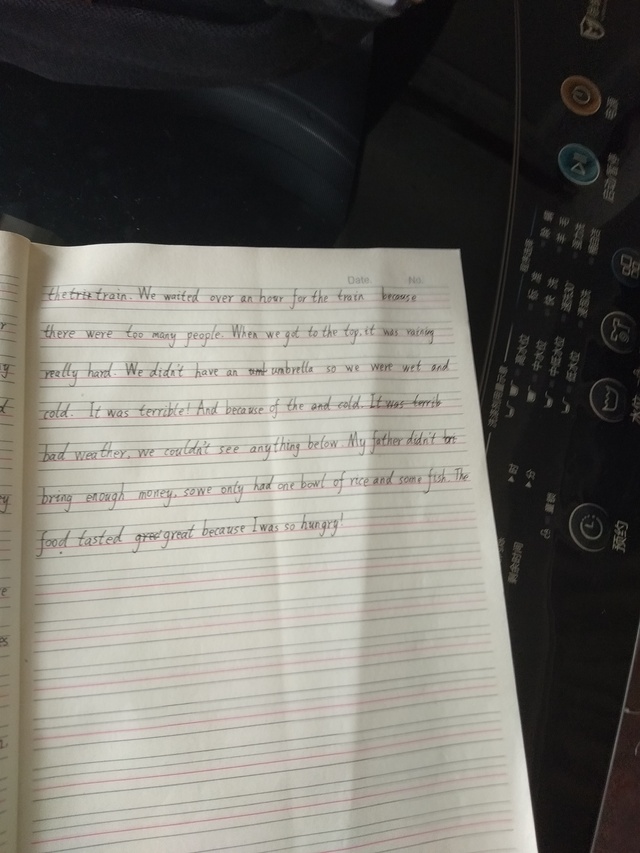 Date. No.
the trie train. We waited over an hour for the train because
there were too many people. When we got to the top, it was raining
really hard. We didn't have an umbrella so we were wet and
cold. It was terrible! And because of the and cold. It was terrib
bad weather, we couldn't see anything below. My father didn't bri
bring enough money, so we only had one bowl of rice and some fish. The
food tasted gree great because I was so hungry!
电源
启动/暂停
预约
高水位
中水位
中低水位
低水位
标准
快洗
童锁
剩余时间
时
分